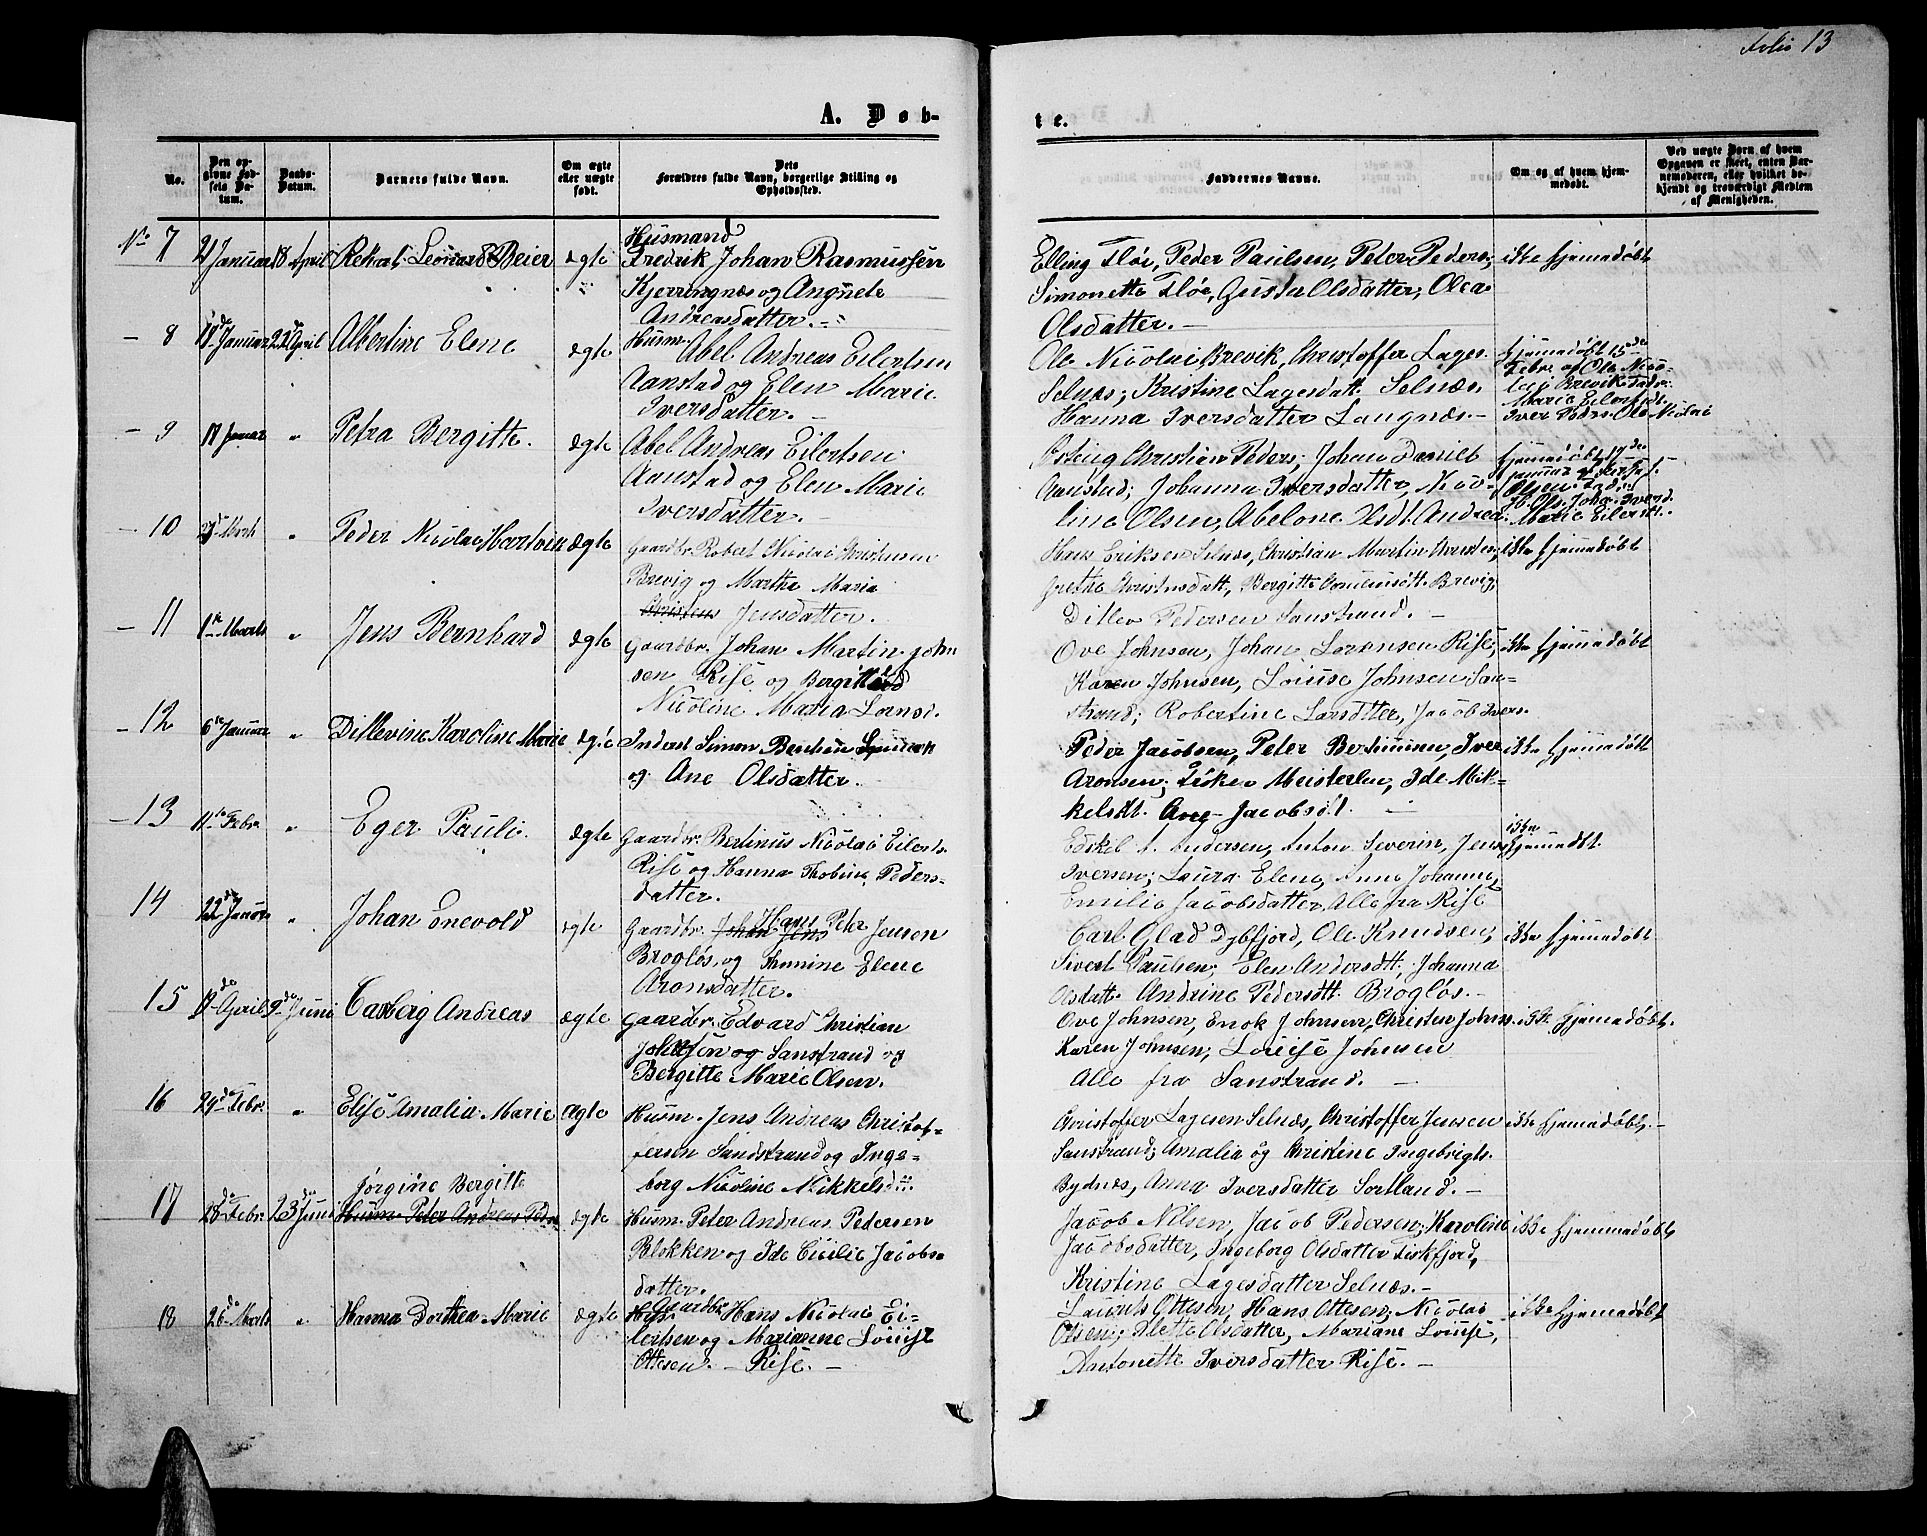 Folio 13
A. Døb-
te.
No.
Den opgivne Fødsels Datum.
Daabs-Datum.
Barnets fulde Navn.
Om ægte eller uægte født.
Dets Forældres fulde Navn, borgerlige Stilling og Opholdssted.
Faddernes Navne.
Om og af hvem hjemmedøbt.
Ved uægte Børn af hvem Opgaven er skeet, enten Barnemoderen, eller hvilket bekjendt og troværdigt Medlem af Menigheden.
No 7 2 Januar 18 April Leonard Beier ægte
Husmand
Fredrik Johan Rasmussen
Kjerringnæs og Angnete
Andreasdatter.
Elling Fløe, Peder Paulsen, Peter Peders,
Simonette Fløe, Gusta Olsdatter, Olea
Olsdatter. —
ikke hjemedøbt
— 8 18de Januar 22de April Albertine Elene ægte
Husm. Abel Andreas Eilertsen
Aanstad og Elen Marie
Iversdatter. —
Ole Nicolai Brevik, Christoffer Lages.
Selnæs, Kristine Lagesdatt. Selnæs
Hanna Iversdatter Langnæs —
hjemmedøbt 15de
Febr. af Ole Nico-
lai Brevik Fadr.
Marie Eilertsdt.
Iver Peders Ole Nicolai
— 9 18 Januar " Petra Bergitte. ægte
Abel Andreas Eilertsen
Aanstad og Elen Marie
Iversdatter. —
Christian Peders, Johan Daniel
Aanstad; Johanna Iversdatter, Nico-
line Olsen, Abelone Olsdt. Andrea
hjemmedøbt 17de
Januar af
Olsen Fadr.
Marie Eilertsdt.
— 10 Marts " Peder Nicolai Hartvik ægte
Gaardbr. Robert Nicolai Christensen
Brevig og Martha Maria
Christens Jensdatter.
Hans Eriksen Selnæs, Christian Martin Christes,
Grethe Christensdatt, Bergitte Brevig,
Ditlev Pedersen Sanstrand. —
ikke hjemedøbt
— 11 1te Marts " Jens Bernhard ægte
Gaardbr. Johan Martin John
sen Rise og Bergitte
Nicoline Maria Lornsd.
Ove Johnsen, Johan Lorensen Rise,
Karen Johnsen, Louise Johnsen San-
strand; Robertine Larsdtter, Jacob Ivers.
ikke hjemedøbt
— 12 6te Januar " Ditlevine Karoline Marie ægte
Inderst Simon
og Ane Olsdatter.
Peder Jacobsen, Peter Iver
Aronsen; Meisterlen, Ide Mik-
kelsdt. Ane Jacobsdt.
ikke hjemedøbt
— 13 11te Febr. " Eger Pauli. ægte
Gaardbr. Bertinus Nicolai Eilerts.
Rise og Hanna Thobine Peders-
datter.
Edskel A. Andersen, Anton Severin, Jens
Iversen; Laura Elene, Anne Johanne,
Emilie Jacobsdatter Alle fra Rise
ikke
hjemmedtt.
14 22de Januar " Johan Enevold ægte
Gaardbr. Johan Jens Hans Peter Jensen
Brogløs, og Thrinine Elene
Aronsdatter.
Carl Glad Dybfjord, Ole Knudsen,
Sivert Paulsen; Elen Andersdtt; Johanna
Olsdatt. Andrine Pedersdtt. Brogløs. —
ikke hjemedøbt
15 1de April 9de Juni Carberg Andreas ægte
Gaardbr. Edvard Christian
Johnsen og Sanstrand og
Bergitte Marie Olsen.
Ove Johnsen, Enok Johnsen, Christen Johns.
Karen Johnsen; Louise Johnsen
Alle fra Sanstrand. —
ikke hjemedøbt.
16 29de Febr. " Elise Amalia Marie ægte
Husm. Jens Andreas Christof-
fersen Sandstrand og Inge-
borg Nicoline Mikkelsd.
Christoffer Lagesen Selnæs, Christoffer Jensen
Sanstrand; Amalia og Christine Ingebrigts.
Bydnæs, Anna Iversdatter Sortland. —
ikke hjemedøbt. —
17 28de Febr. 23de Juni Jørgine Bergitte
Husm. Peter Andreas Peder ægte
Husm. Peter Andreas Pedersen
Blokken og Ide Cicilie Jacobs-
datter.
Jacob Nilsen, Jacob Pedersen; Karoline
Jacobsdatter, Ingeborg Olsdatter Fiskfjord,
Kristine Lagesdatter Selnæs. —
ikke hjemmedøbt
18 26de Marts " Hanna Dorthea Marie ægte
Gaardbr. Hans Nicolai Ei-
lertsen og Marianne Louise
Ottesen. — Rise. —
Laurits Ottesen, Hans Ottesen; Nicolai
Olsen; Alette Olsdatter, Mariane Louise,
Antonette Iversdatter Rise. —
ikke hjemedøbt